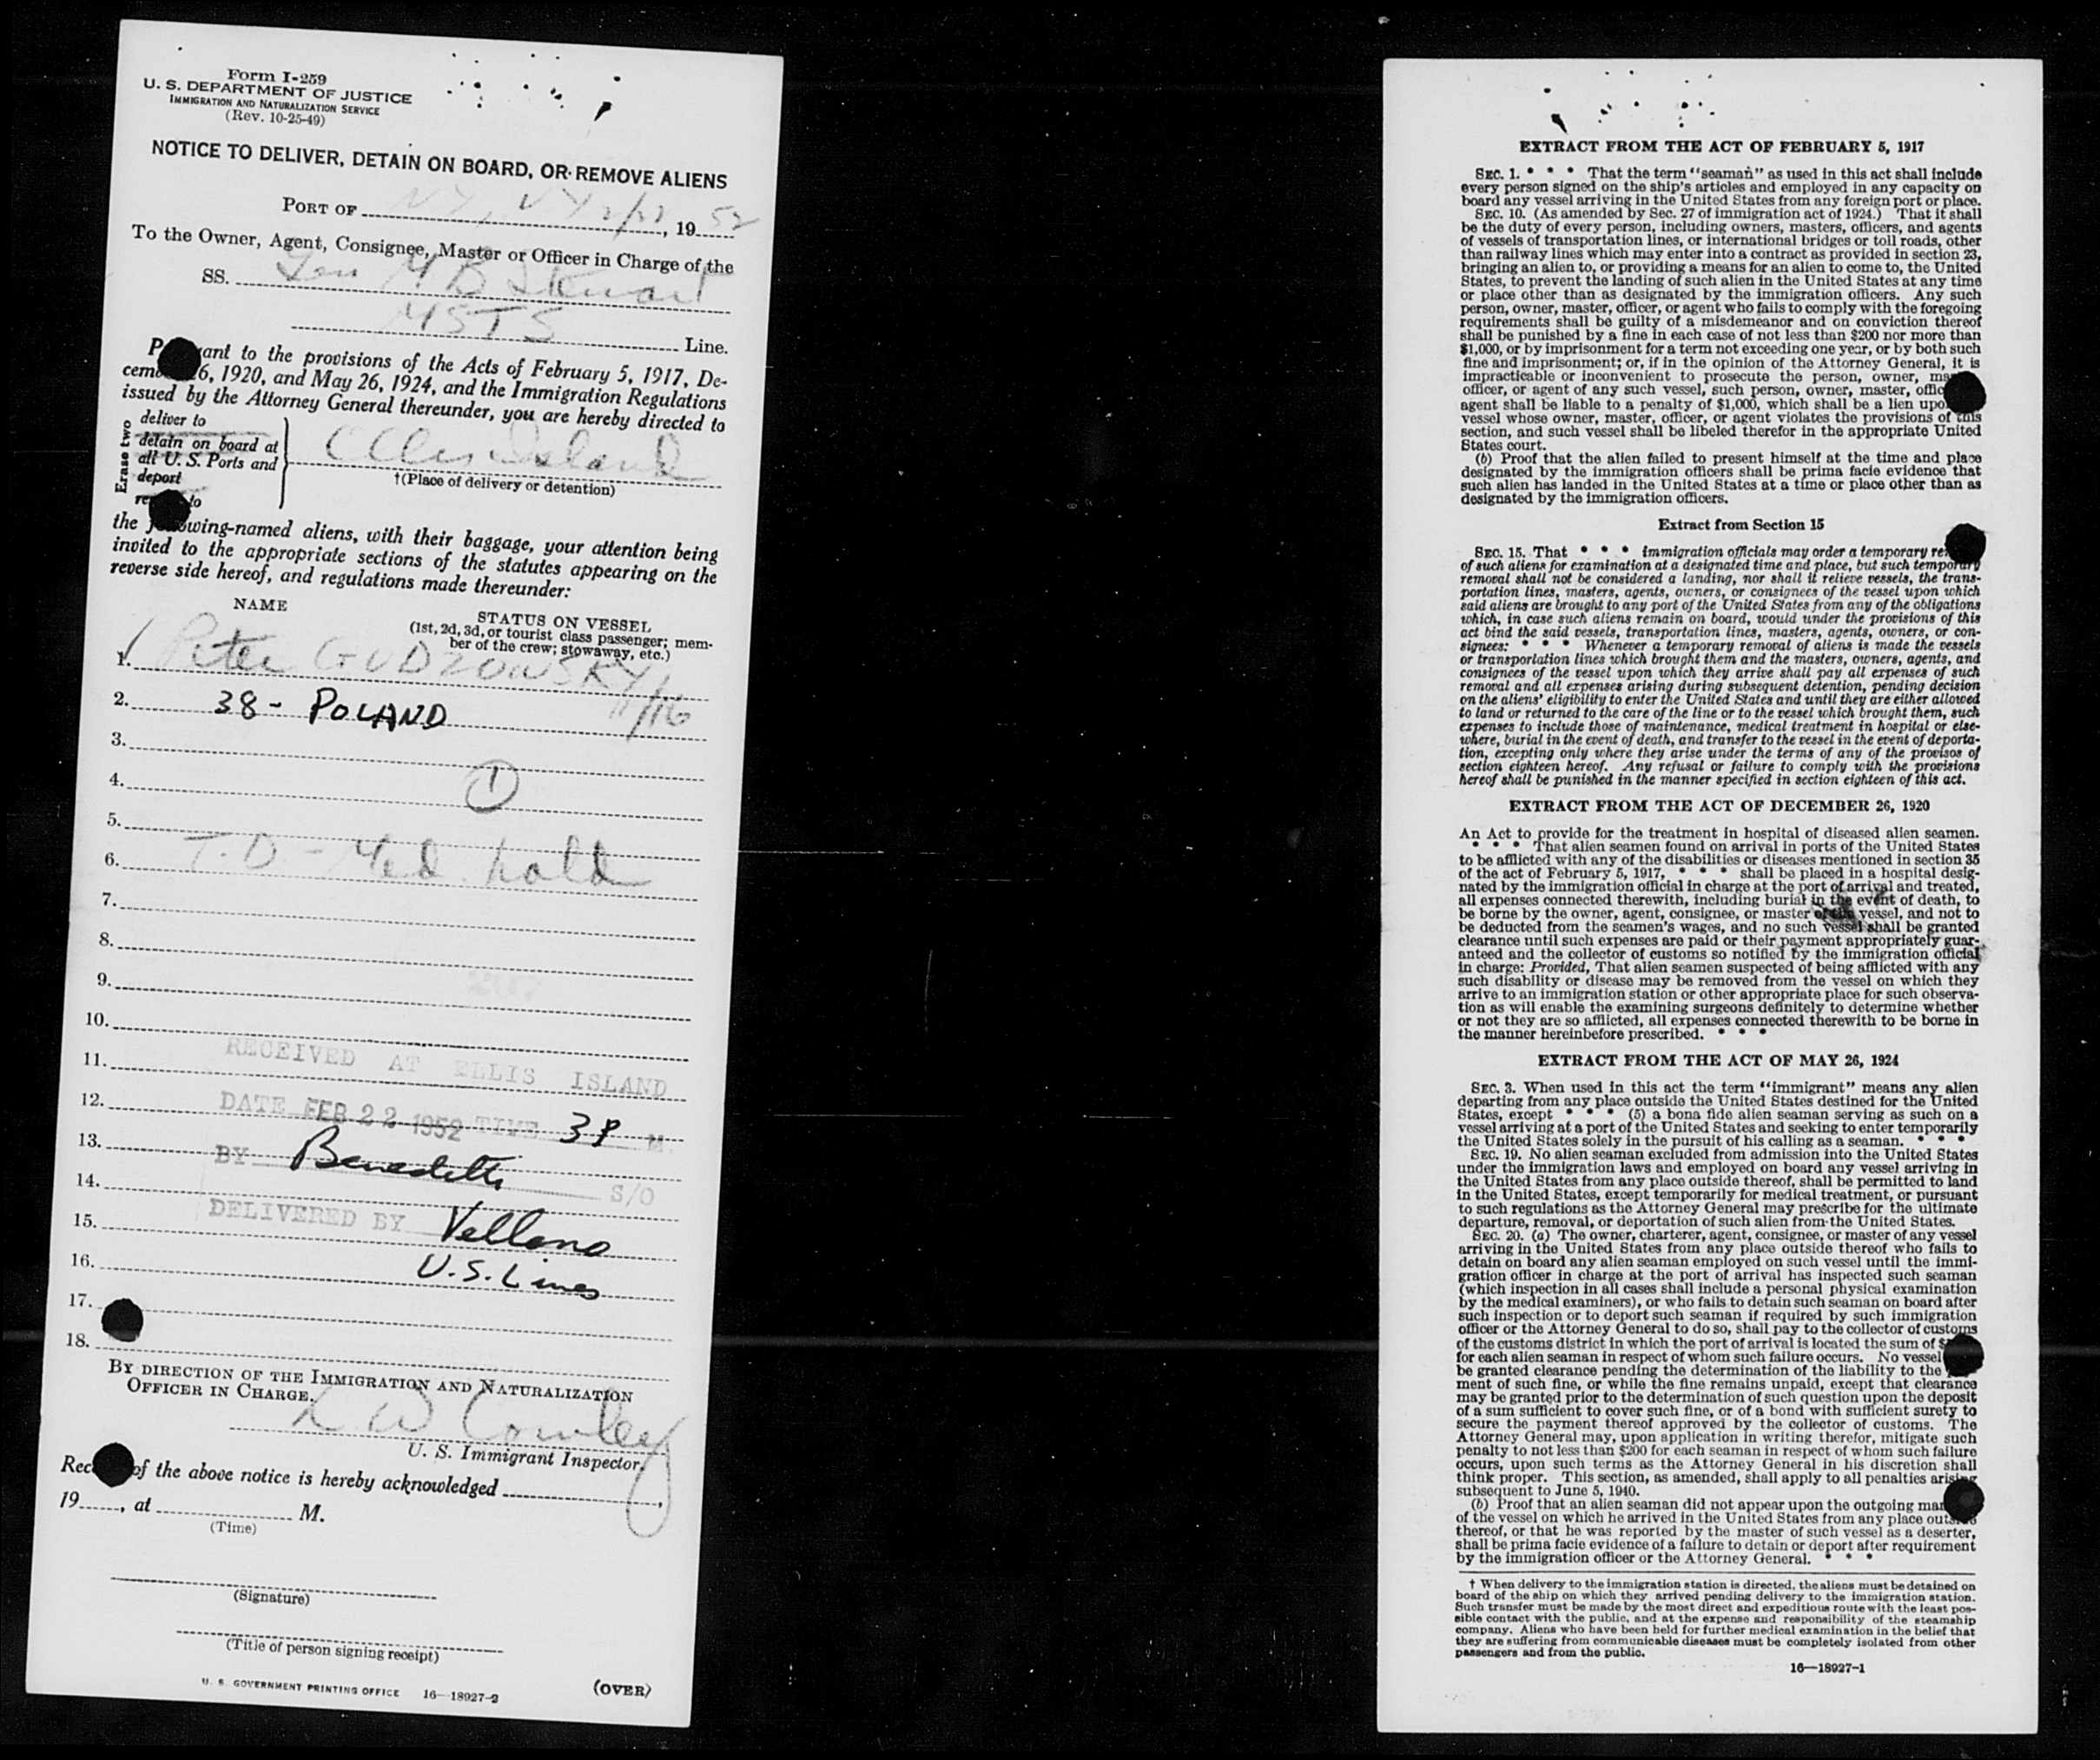 Form I-259
U. S. DEPARTMENT OF JUSTICE
IMMIGRATION AND NATURALIZATION SERVICE
(Rev. 10-25-49)
NOTICE TO DELIVER, DETAIN ON BOARD, OR REMOVE ALIENS
PORT OF NY, NY 2/22, 1952
To the Owner, Agent, Consignee, Master or Officer in Charge of the
SS. Gen M B Stewart
MSTS Line.
ant to the provisions of the Acts of February 5, 1917, De-
6, 1920, and May 26, 1924, and the Immigration Regulations
issued by the Attorney General thereunder, you are hereby directed to
Erase two
deliver to
detain on board at
all U. S. Ports and
deport
to
Ellis Island
†(Place of delivery or detention)
the wing-named aliens, with their baggage, your attention being
invited to the appropriate sections of the statutes appearing on the
reverse side hereof, and regulations made thereunder:
NAME
STATUS ON VESSEL
(1st, 2d, 3d, or tourist class passenger; mem-
ber of the crew; stowaway, etc.)
1. Peter GUDZOWSKY
11/16
2. 38 - POLAND
3.
4. 1
5.
6. T.D - Med hold
7.
8.
9.
10.
RECEIVED AT ELLIS ISLAND
11.
12. DATE FEB 22 1952 TIME 3P M.
13. BY Benedetti
14. S/O
15. DELIVERED BY Vellano
16. U.S. Lines
17.
18.
BY DIRECTION OF THE IMMIGRATION AND NATURALIZATION
OFFICER IN CHARGE.
L W Cowley
U. S. Immigrant Inspector.
Rec of the above notice is hereby acknowledged ,
19 , at M.
(Time)
(Signature)
(Title of person signing receipt)
U. S. GOVERNMENT PRINTING OFFICE 16—18927-2 (OVER)
EXTRACT FROM THE ACT OF FEBRUARY 5, 1917
SEC. 1. * * * That the term "seaman" as used in this act shall include
every person signed on the ship's articles and employed in any capacity on
board any vessel arriving in the United States from any foreign port or place.
SEC. 10. (As amended by Sec. 27 of immigration act of 1924.) That it shall
be the duty of every person, including owners, masters, officers, and agents
of vessels of transportation lines, or international bridges or toll roads, other
than railway lines which may enter into a contract as provided in section 23,
bringing an alien to, or providing a means for an alien to come to, the United
States, to prevent the landing of such alien in the United States at any time
or place other than as designated by the immigration officers. Any such
person, owner, master, officer, or agent who fails to comply with the foregoing
requirements shall be guilty of a misdemeanor and on conviction thereof
shall be punished by a fine in each case of not less than $200 nor more than
$1,000, or by imprisonment for a term not exceeding one year, or by both such
fine and imprisonment; or, if in the opinion of the Attorney General, it is
impracticable or inconvenient to prosecute the person, owner, ma
officer, or agent of any such vessel, such person, owner, master, offic
agent shall be liable to a penalty of $1,000, which shall be a lien upo
vessel whose owner, master, officer, or agent violates the provisions of this
section, and such vessel shall be libeled therefor in the appropriate United
States court.
(b) Proof that the alien failed to present himself at the time and place
designated by the immigration officers shall be prima facie evidence that
such alien has landed in the United States at a time or place other than as
designated by the immigration officers.
Extract from Section 15
SEC. 15. That * * * immigration officials may order a temporary re
of such aliens for examination at a designated time and place, but such temporary
removal shall not be considered a landing, nor shall it relieve vessels, the trans-
portation lines, masters, agents, owners, or consignees of the vessel upon which
said aliens are brought to any port of the United States from any of the obligations
which, in case such aliens remain on board, would under the provisions of this
act bind the said vessels, transportation lines, masters, agents, owners, or con-
signees: * * * Whenever a temporary removal of aliens is made the vessels
or transportation lines which brought them and the masters, owners, agents, and
consignees of the vessel upon which they arrive shall pay all expenses of such
removal and all expenses arising during subsequent detention, pending decision
on the aliens' eligibility to enter the United States and until they are either allowed
to land or returned to the care of the line or to the vessel which brought them, such
expenses to include those of maintenance, medical treatment in hospital or else-
where, burial in the event of death, and transfer to the vessel in the event of deporta-
tion, excepting only where they arise under the terms of any of the provisos of
section eighteen hereof. Any refusal or failure to comply with the provisions
hereof shall be punished in the manner specified in section eighteen of this act.
EXTRACT FROM THE ACT OF DECEMBER 26, 1920
An Act to provide for the treatment in hospital of diseased alien seamen.
* * * That alien seamen found on arrival in ports of the United States
to be afflicted with any of the disabilities or diseases mentioned in section 35
of the act of February 5, 1917, * * * shall be placed in a hospital desig-
nated by the immigration official in charge at the port of arrival and treated,
all expenses connected therewith, including burial in the event of death, to
be borne by the owner, agent, consignee, or master of the vessel, and not to
be deducted from the seamen's wages, and no such vessel shall be granted
clearance until such expenses are paid or their payment appropriately guar-
anteed and the collector of customs so notified by the immigration official
in charge: Provided, That alien seamen suspected of being afflicted with any
such disability or disease may be removed from the vessel on which they
arrive to an immigration station or other appropriate place for such observa-
tion as will enable the examining surgeons definitely to determine whether
or not they are so afflicted, all expenses connected therewith to be borne in
the manner hereinbefore prescribed. * * *
EXTRACT FROM THE ACT OF MAY 26, 1924
SEC. 3. When used in this act the term "immigrant" means any alien
departing from any place outside the United States destined for the United
States, except * * * (5) a bona fide alien seaman serving as such on a
vessel arriving at a port of the United States and seeking to enter temporarily
the United States solely in the pursuit of his calling as a seaman. * * *
SEC. 19. No alien seaman excluded from admission into the United States
under the immigration laws and employed on board any vessel arriving in
the United States from any place outside thereof, shall be permitted to land
in the United States, except temporarily for medical treatment, or pursuant
to such regulations as the Attorney General may prescribe for the ultimate
departure, removal, or deportation of such alien from the United States.
SEC. 20. (a) The owner, charterer, agent, consignee, or master of any vessel
arriving in the United States from any place outside thereof who fails to
detain on board any alien seaman employed on such vessel until the immi-
gration officer in charge at the port of arrival has inspected such seaman
(which inspection in all cases shall include a personal physical examination
by the medical examiners), or who fails to detain such seaman on board after
such inspection or to deport such seaman if required by such immigration
officer or the Attorney General to do so, shall pay to the collector of customs
of the customs district in which the port of arrival is located the sum of $
for each alien seaman in respect of whom such failure occurs. No vessel
be granted clearance pending the determination of the liability to the
ment of such fine, or while the fine remains unpaid, except that clearance
may be granted prior to the determination of such question upon the deposit
of a sum sufficient to cover such fine, or of a bond with sufficient surety to
secure the payment thereof approved by the collector of customs. The
Attorney General may, upon application in writing therefor, mitigate such
penalty to not less than $200 for each seaman in respect of whom such failure
occurs, upon such terms as the Attorney General in his discretion shall
think proper. This section, as amended, shall apply to all penalties arising
subsequent to June 5, 1940.
(b) Proof that an alien seaman did not appear upon the outgoing man
of the vessel on which he arrived in the United States from any place outside
thereof, or that he was reported by the master of such vessel as a deserter,
shall be prima facie evidence of a failure to detain or deport after requirement
by the immigration officer or the Attorney General. * * *
† When delivery to the immigration station is directed, the aliens must be detained on
board of the ship on which they arrived pending delivery to the immigration station.
Such transfer must be made by the most direct and expeditious route with the least pos-
sible contact with the public, and at the expense and responsibility of the steamship
company. Aliens who have been held for further medical examination in the belief that
they are suffering from communicable diseases must be completely isolated from other
passengers and from the public.
16—18927-1